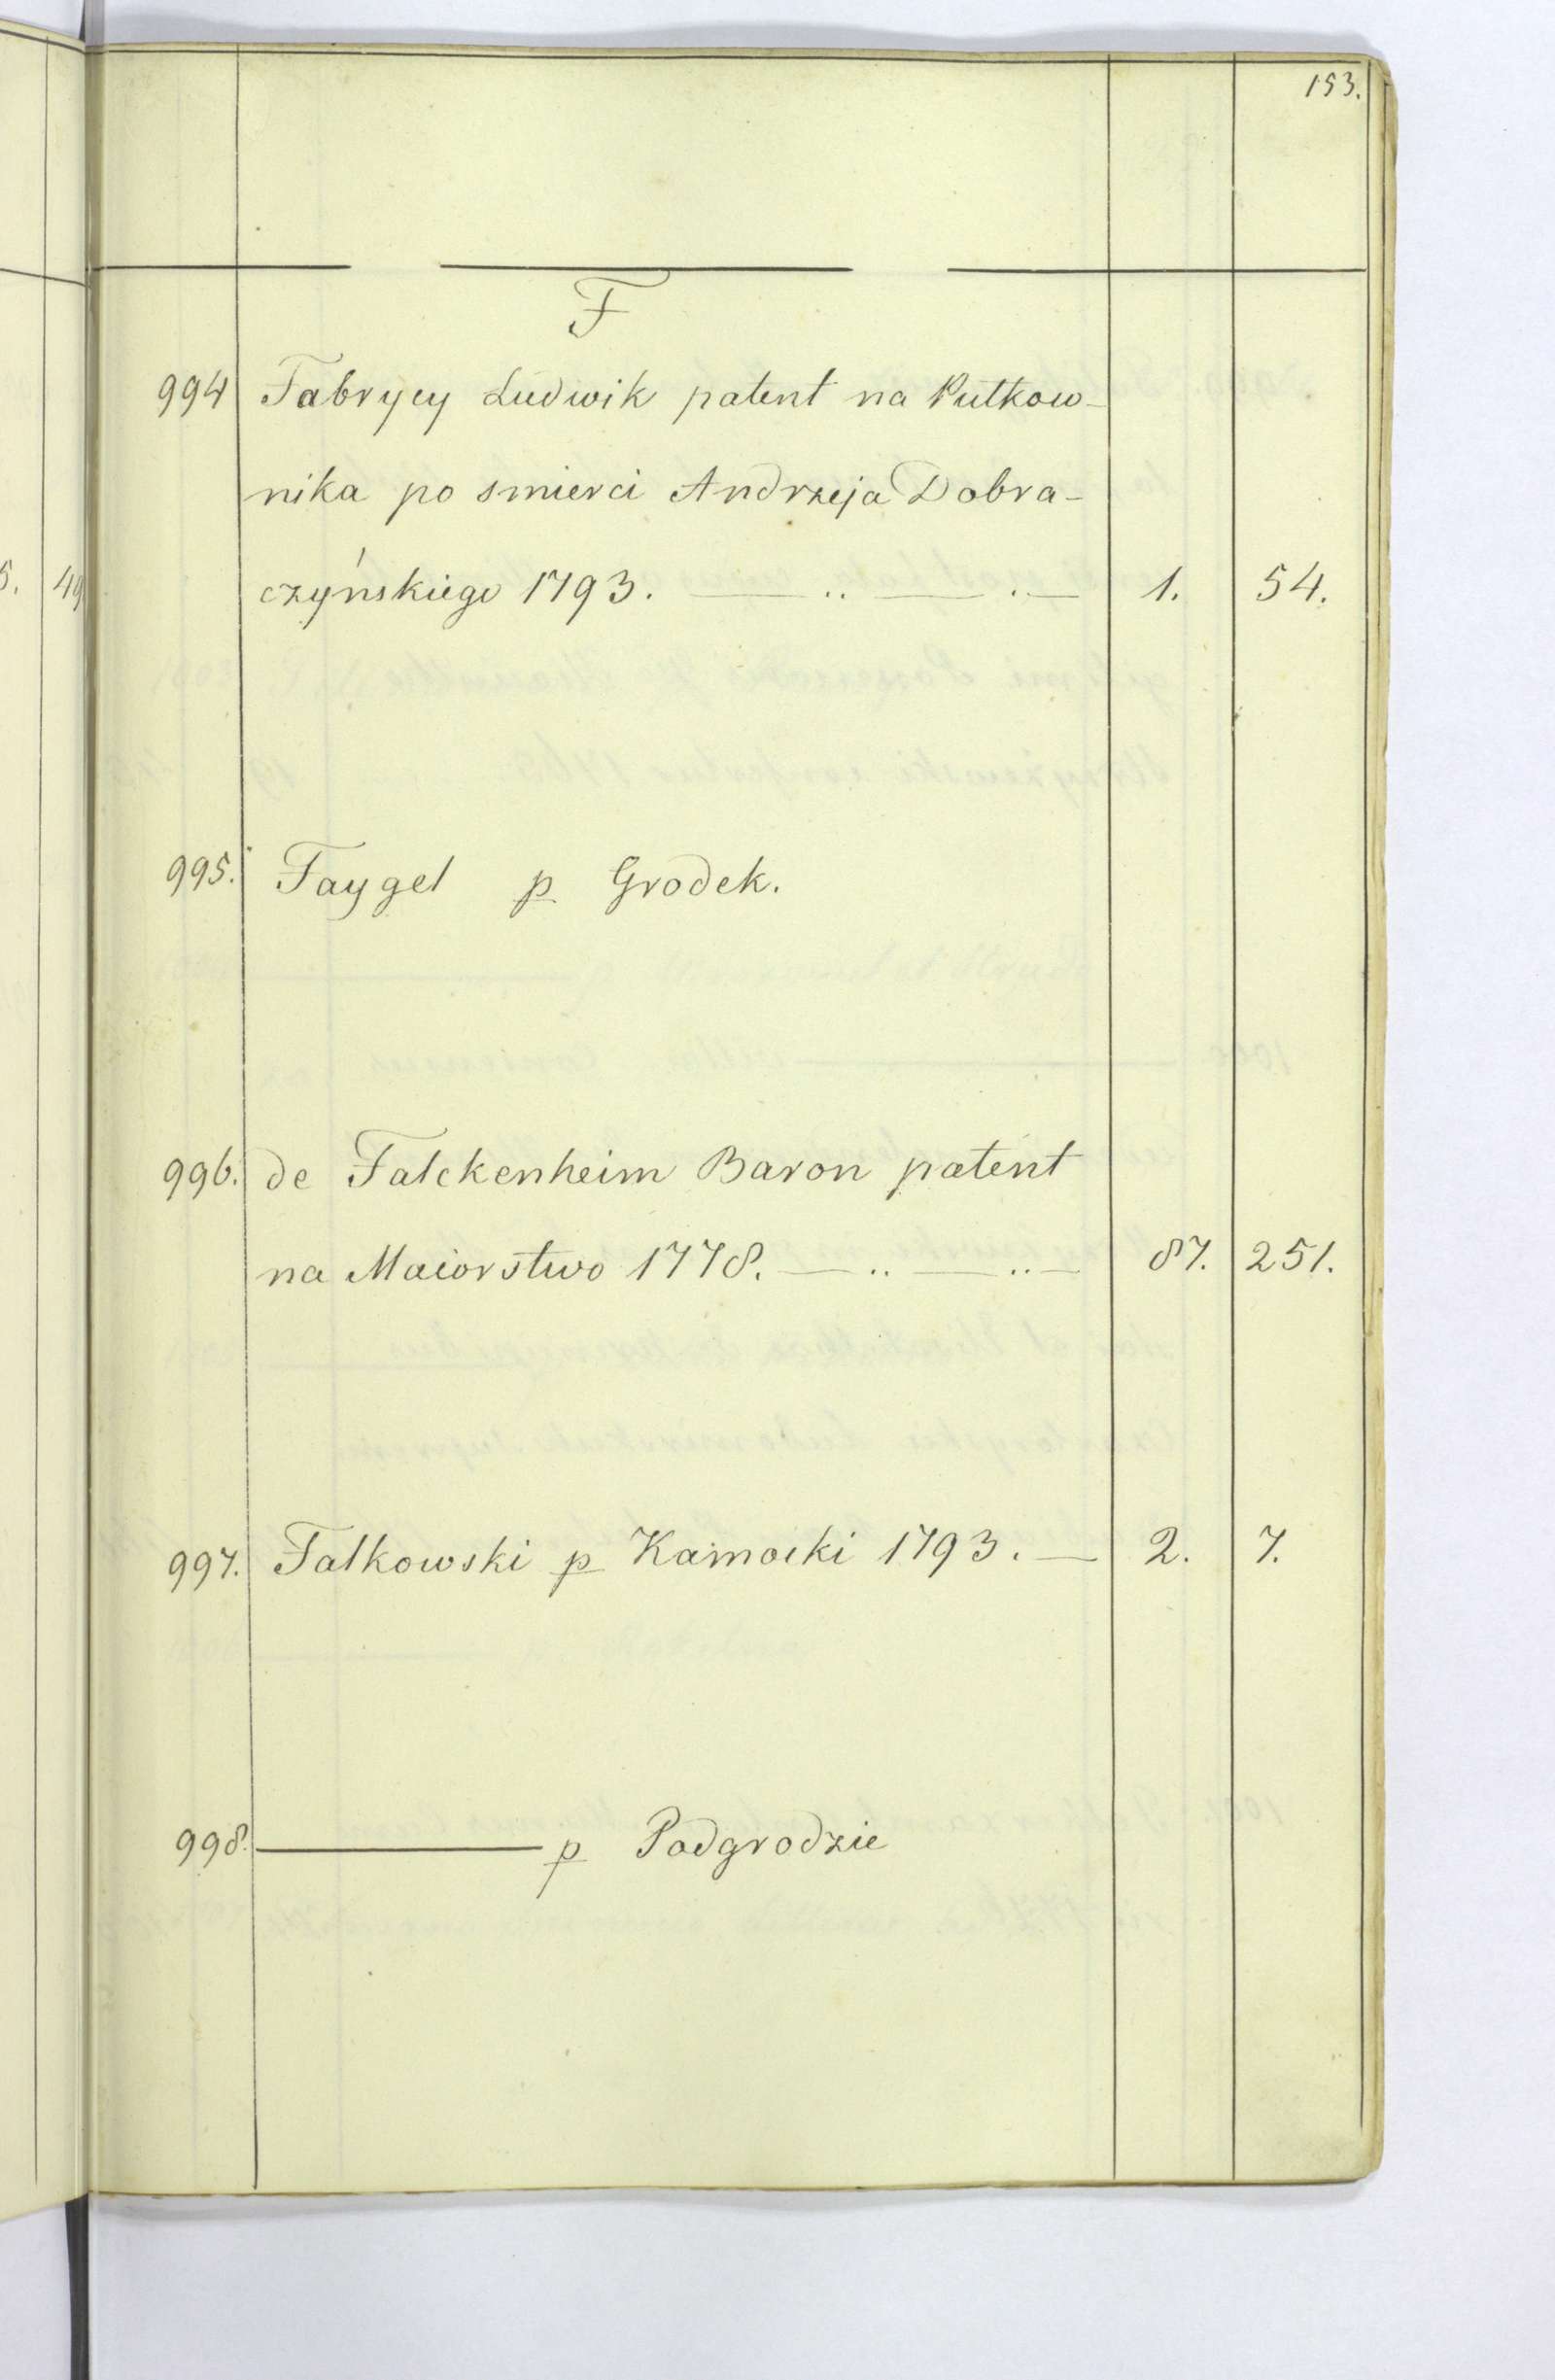 153.
F
994 Fabrycy Ludwik patent na Pułkow-
nika po smierci Andrzeja Dobra-
czyńskiego 1793. — .. — . — 1. 54.
995. Faygel p Grodek.
996. de Falckenheim Baron patent
na Maiorstwo 1778. — .. — .. — 87. 251.
997. Falkowski p Kamocki 1793. — 2. 7.
998. ——— p Podgrodzie
5. 49